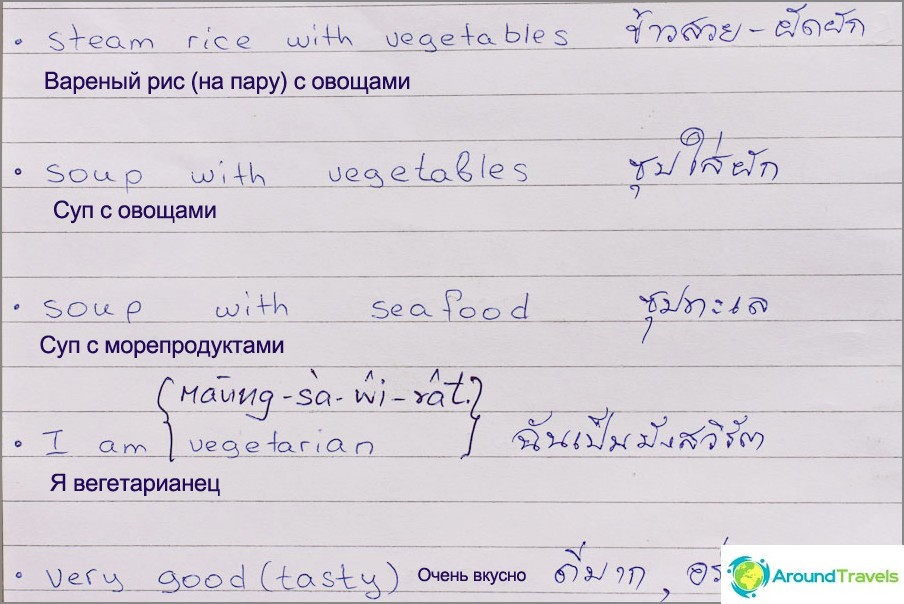 • steam rice with vegetables ข้าวสวย - ผัดผัก
Вареный рис (на пару) с овощами
• soup with vegetables ซุปใส่ผัก
Суп с овощами
• soup with seafood ซุปทะเล
Суп с морепродуктами
{māung-sà-wî-rât.}
• I am {vegetarian} ฉันเป็นมังสวิรัต
Я вегетарианец
• very good (tasty) Очень вкусно ดีมาก,
AroundTravels